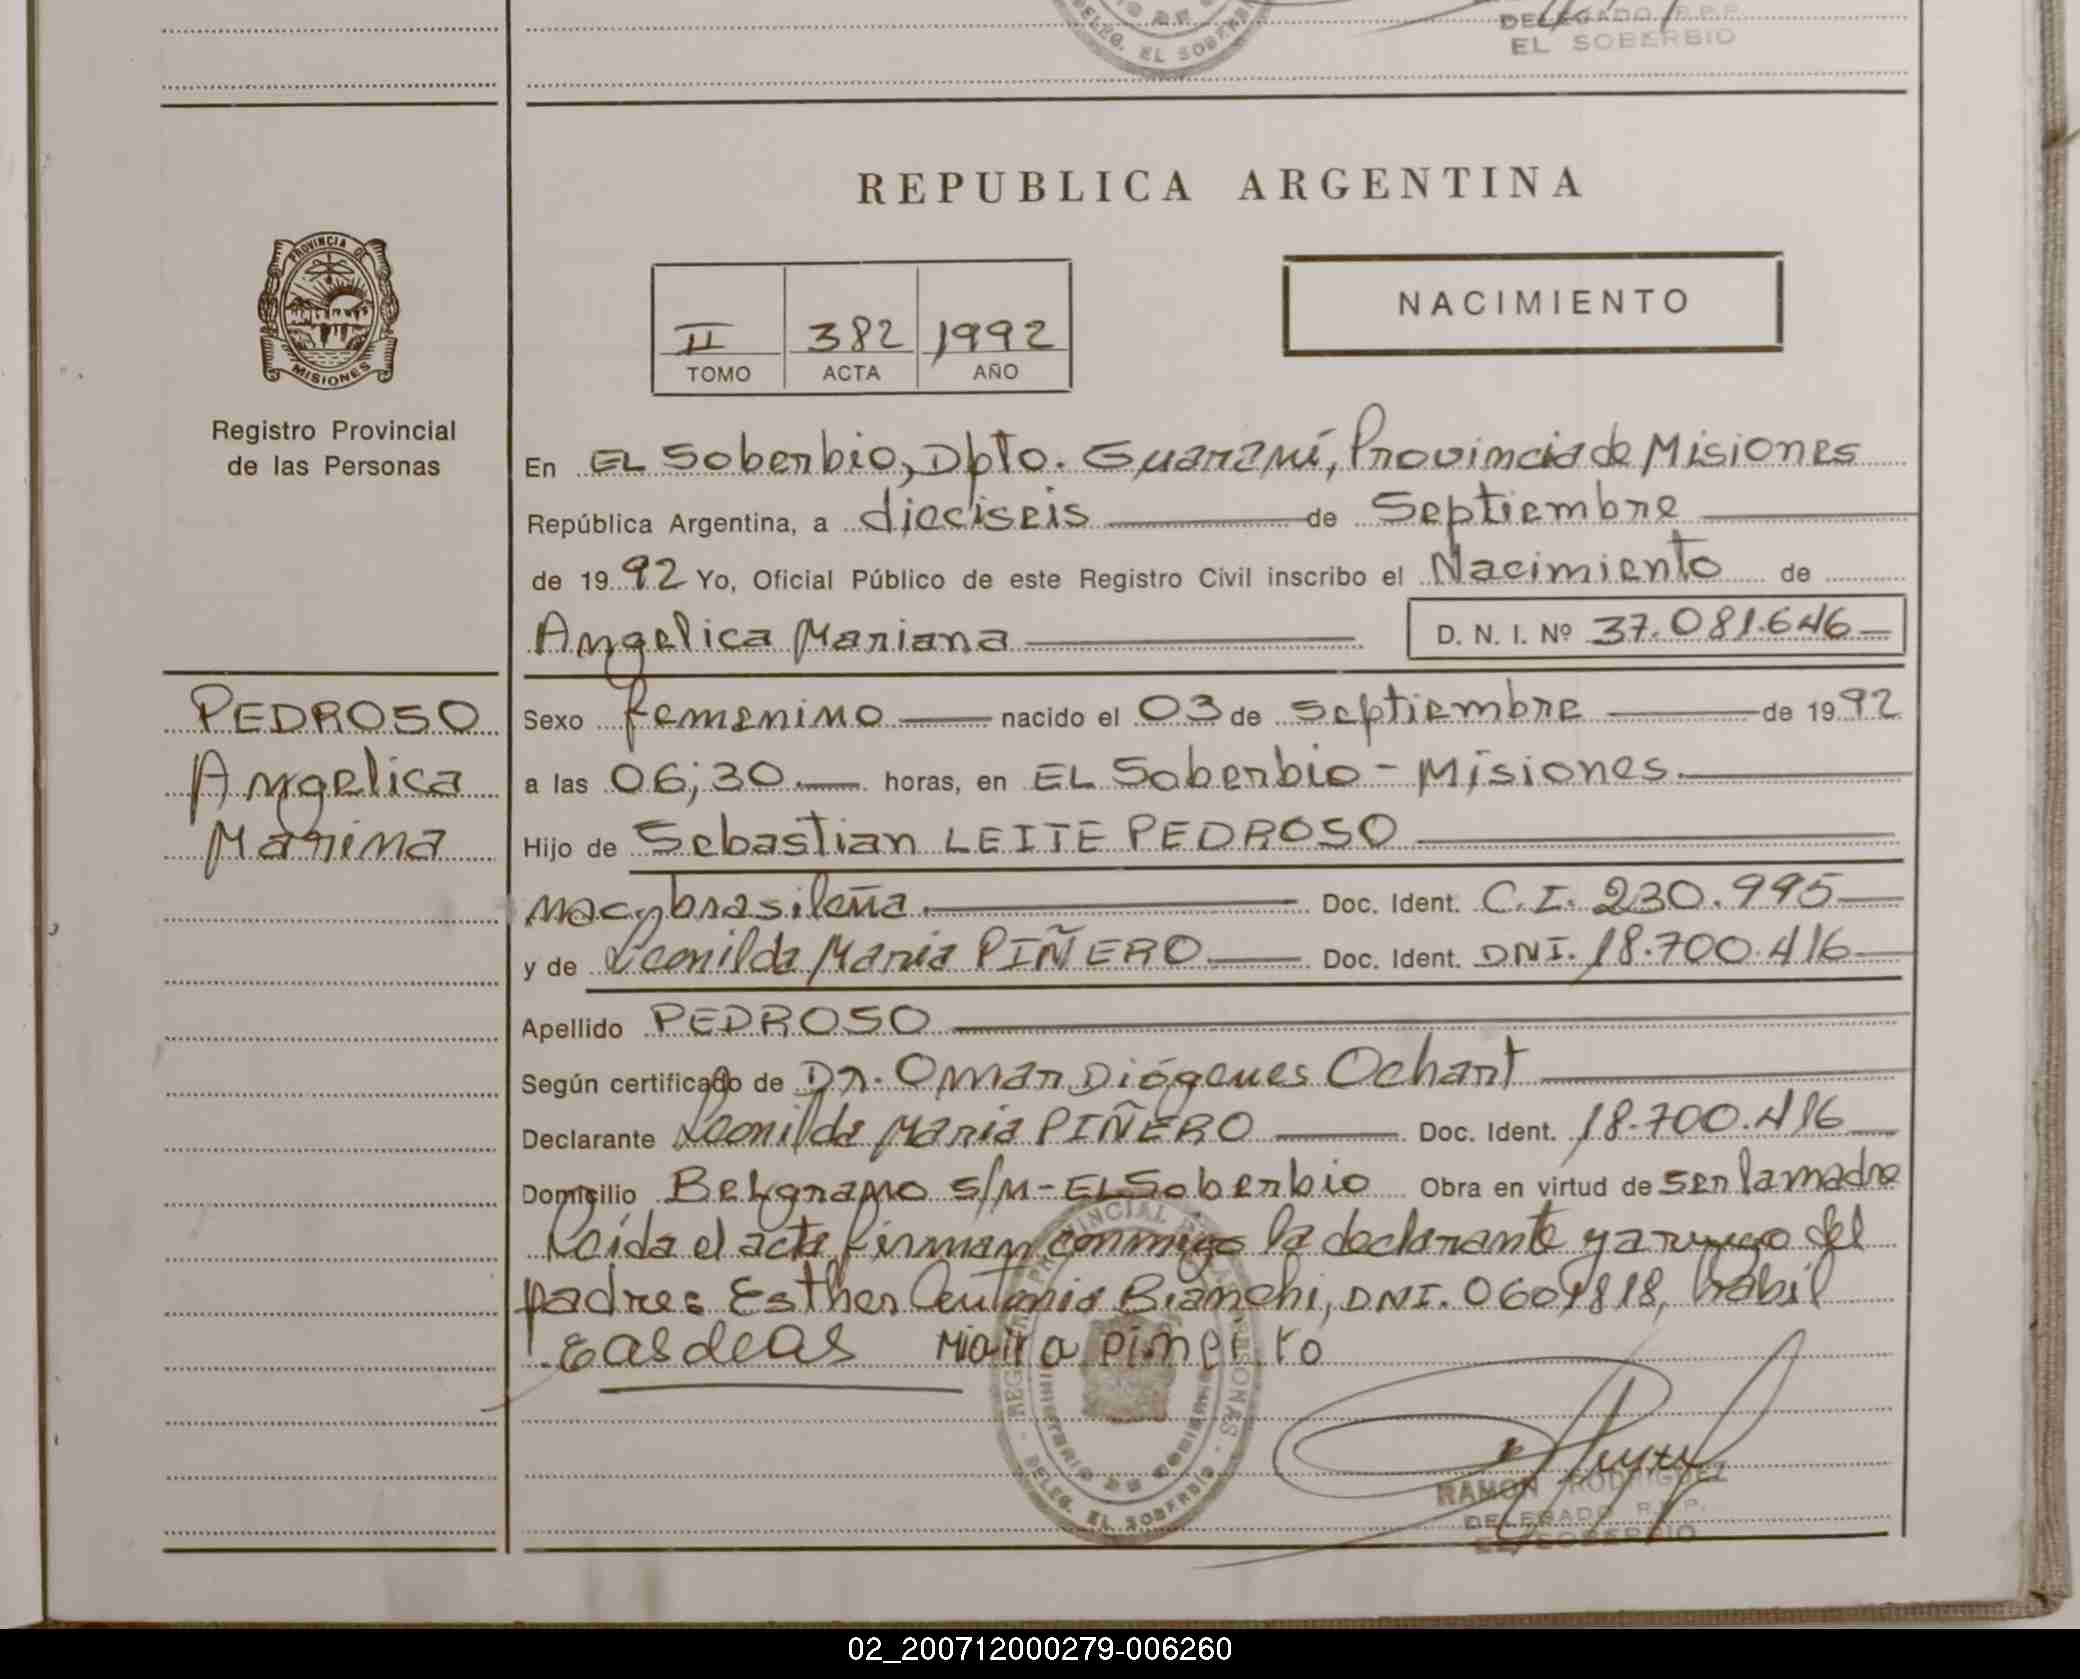 DELEG. EL SOBERBIO
DELEGADO R.P.P.
EL SOBERBIO
REPUBLICA ARGENTINA
PROVINCIA DE
MISIONES
Registro Provincial
de las Personas
II 382 1992
TOMO ACTA AÑO
NACIMIENTO
En EL Soberbio, Dpto. Guaraní, Provincia de Misiones
República Argentina, a dieciseis de Septiembre
de 1992 Yo, Oficial Público de este Registro Civil inscribo el Nacimiento de
Angelica Mariana D. N. I. Nº 37.081.646
PEDROSO
Angelica
Sexo femenino nacido el 03 de septiembre de 1992
a las 06;30 horas, en EL Soberbio - Misiones.
Hijo de Sebastian LEITE PEDROSO
nac. brasileña. Doc. Ident. C.I. 230.995
y de Leonilda Maria PIÑERO Doc. Ident. DNI. 18.700.416
Apellido PEDROSO
Según certificado de Dr. Omar Diógenes Ochart
Declarante Leonilda Maria PIÑERO Doc. Ident. 18.700.416
Domicilio Belgrano s/n - EL Soberbio Obra en virtud de ser la madre
Leída el acta, firman conmigo la declarante y a ruego del
padre: Esther Antonia Bianchi, DNI. habil
REGISTRO PROVINCIAL DE LAS PERSONAS
MINISTERIO DE GOBIERNO
DELEG. EL SOBERBIO
RAMON RODRIGUEZ
DELEGADO R.P.P.
EL SOBERBIO
02_200712000279-006260